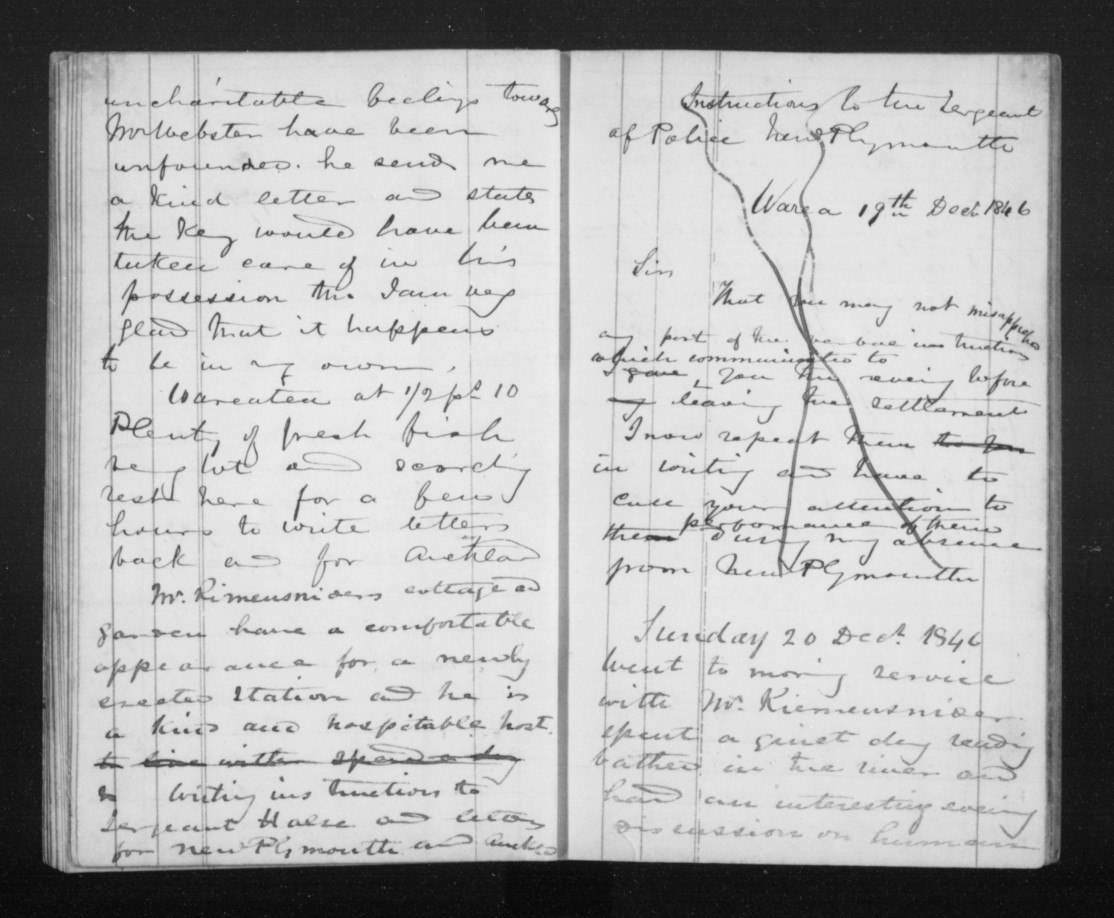 uncharitable feelings towards
Mr Webster have been
unfounded. he sends me
a kind letter and states
the Key would have been
taken care of in his
possession tho I am very
glad that it happens
to be in my own.
Wareatea at 1/2 pt 10
Plenty of fresh fish
very hot and scorching
rest here for a few
hours to write letters
back and for Auckland
Mr. Rimensniders cottage and
garden have a comfortable
appearance for a newly
erected Station and he is
a kind and hospitable host.
to live with spend a day
Writing instructions to
Sergeant Halse and letters
for New Plymouth and Auckland
Instructions to the Sergeant
of Police New Plymouth
Warea 19th Decr 1846
Sir
That you may not misapprehend
any part of the verbal instructions
which communicated to
I gave you the evening before
my leaving the settlement
I now repeat them
in writing and have to
call your attention to
performance of them
them during my absence
from New Plymouth
Sunday 20 Decr. 1846
Went to morning service
with Mr. Riemensnider
spent a quiet day reading
bathed in the river and
had an interesting evening
discussion on human